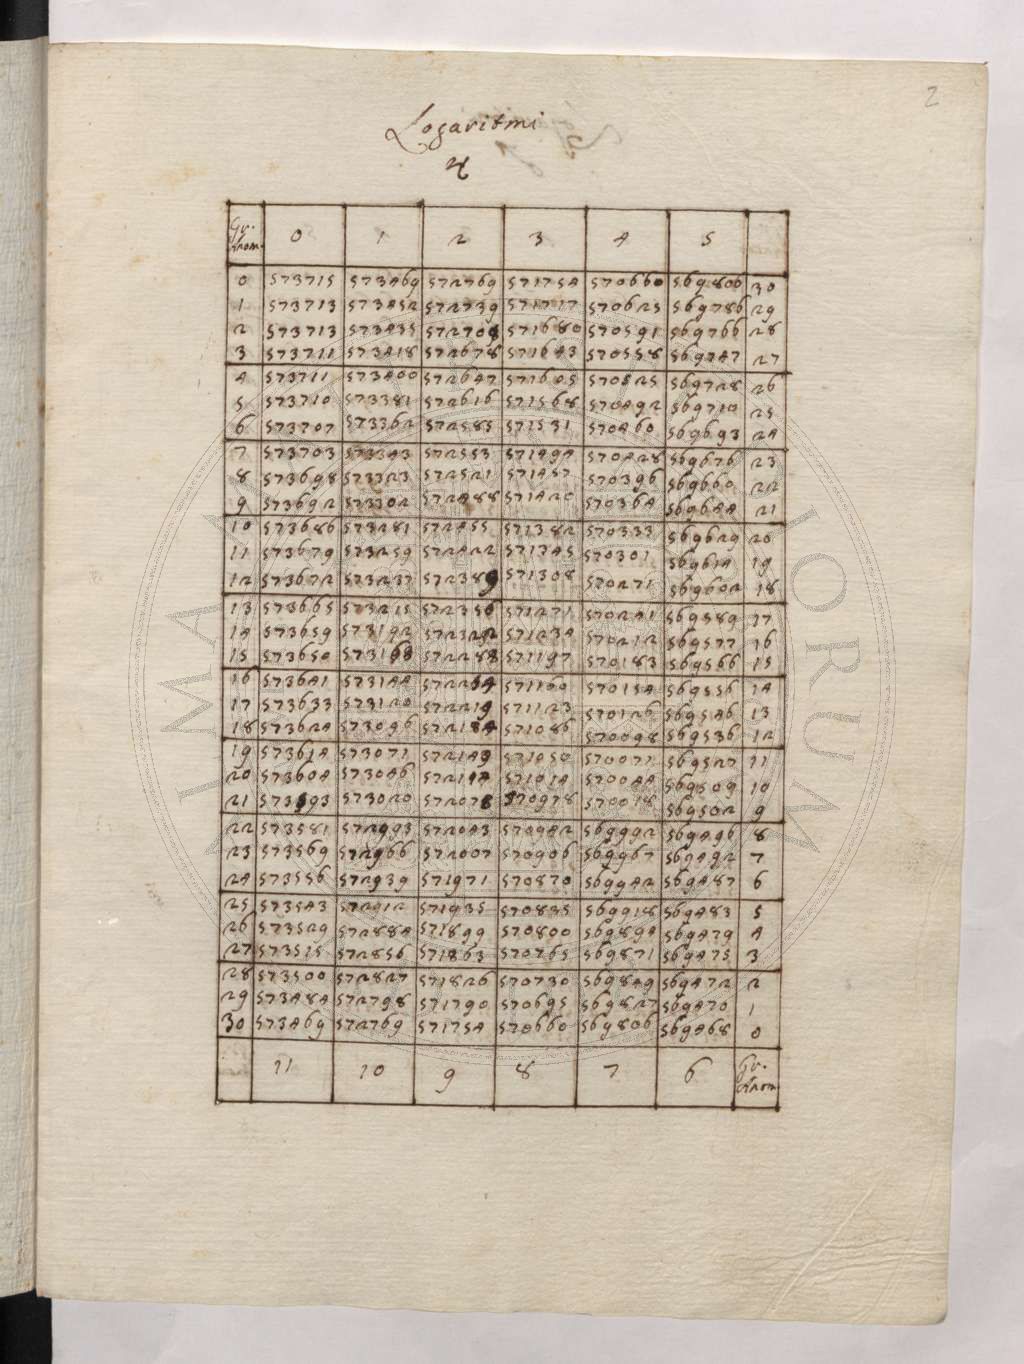 2
Logaritmi
♃
Gr. Anom. 0 1 2 3 4 5
0 573715 573469 572769 571754 570660 569806 30
1 573713 573452 572739 571717 570625 569786 29
2 573713 573435 572708 571680 570591 569766 28
3 573711 573418 572678 571643 570558 569747 27
4 573711 573400 572647 571605 570525 569728 26
5 573710 573381 572616 571568 570492 569710 25
6 573707 573362 572585 571531 570460 569693 24
7 573703 573343 572553 571494 570428 569676 23
8 573698 573323 572521 571457 570396 569660 22
9 573692 573302 572488 571420 570364 569644 21
10 573686 573281 572455 571382 570333 569629 20
11 573679 573259 572422 571345 570301 569614 19
12 573672 573237 572389 571308 570271 569602 18
13 573665 573215 572356 571271 570241 569589 17
14 573659 573192 572322 571234 570212 569577 16
15 573650 573168 572288 571197 570183 569566 15
16 573641 573144 572254 571160 570154 569556 14
17 573633 573120 572219 571123 570126 569546 13
18 573624 573096 572184 571086 570098 569536 12
19 573614 573071 572149 571050 570071 569527 11
20 573604 573046 572114 571014 570044 569509 10
21 573593 573020 572078 570978 570018 569502 9
22 573581 572993 572043 570942 569992 569496 8
23 573569 572966 572007 570906 569967 569492 7
24 573556 572939 571971 570870 569942 569487 6
25 573543 572912 571935 570835 569918 569483 5
26 573529 572884 571899 570800 569894 569479 4
27 573515 572856 571863 570765 569871 569475 3
28 573500 572827 571826 570730 569849 569472 2
29 573484 572798 571790 570695 569827 569470 1
30 573469 572769 571754 570660 569806 569468 0
11 10 9 8 7 6 Gr. Anom.